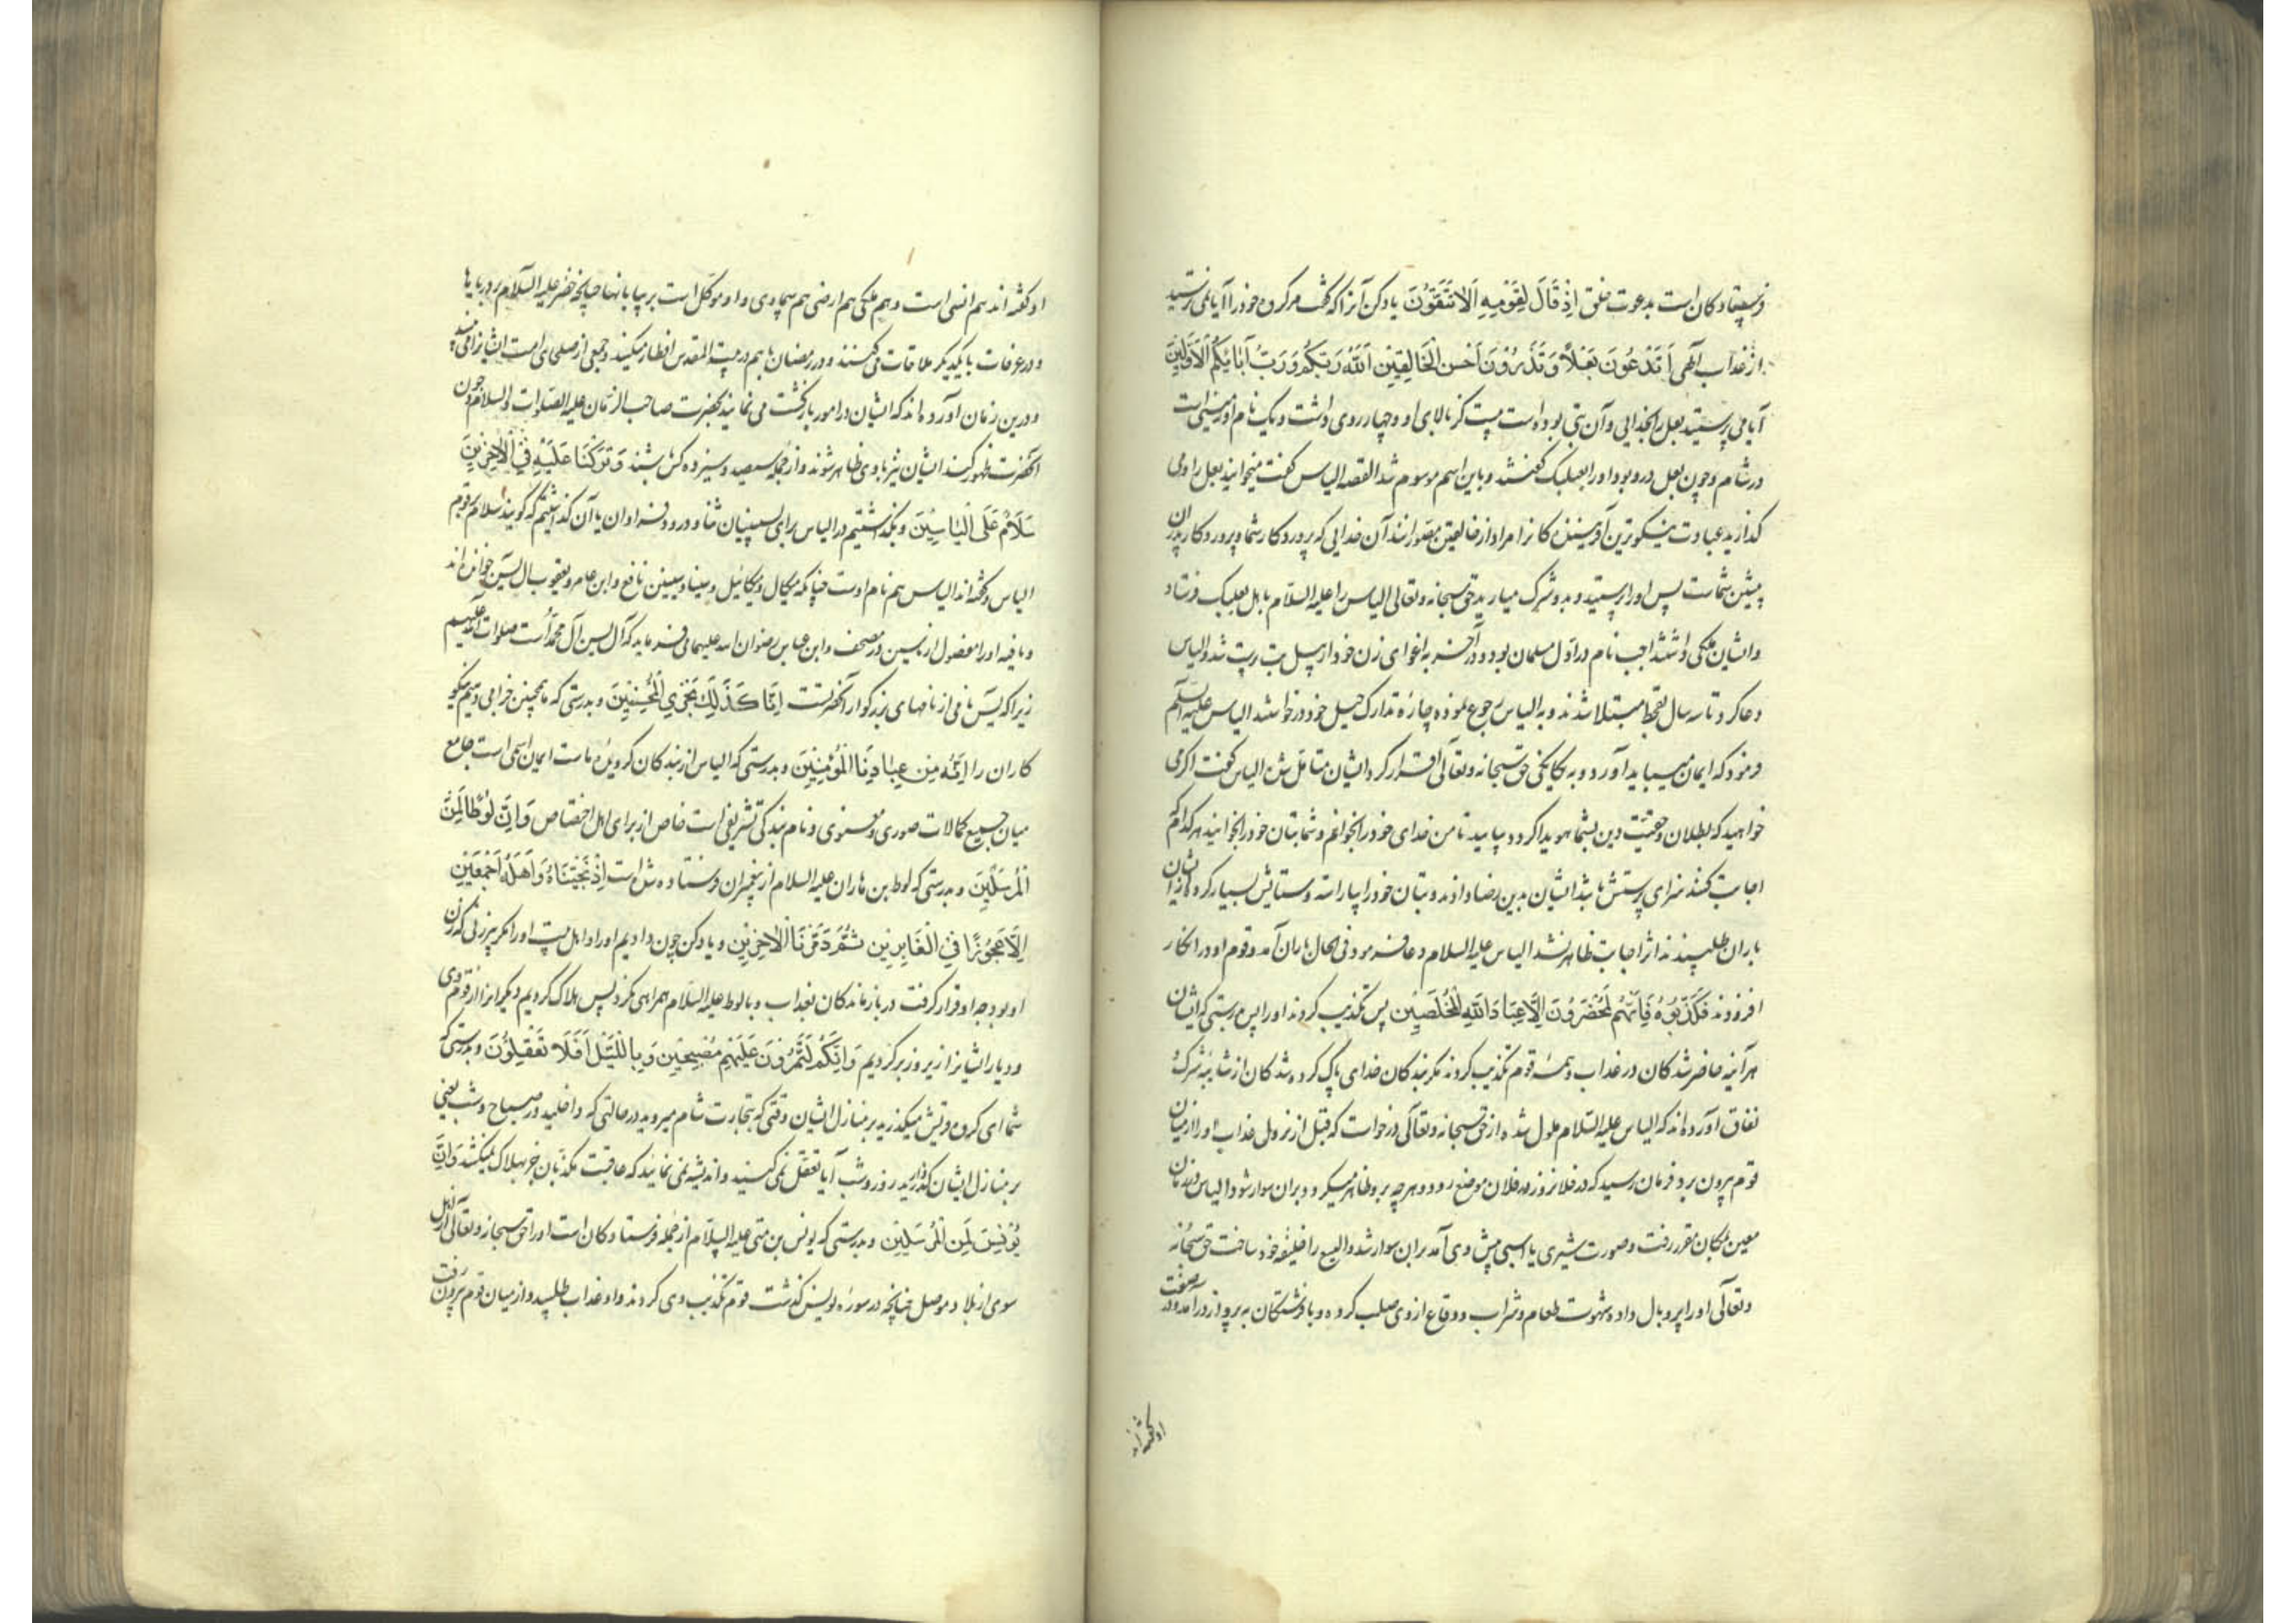 فرستادکان است بدعوت خلق اِذْ قَالَ لِقَوْمِهِ اَلَا تَتَّقُوْنَ یاد کن آنرا که گفت مر کروه خود را آیا نمی ترسید
از عذاب آلهی اَتَدْعُوْنَ بَعْلًا وَتَذَرُوْنَ اَحْسَنَ الْخَالِقِیْنَ اَللّٰهَ رَبَّکُمْ وَرَبَّ آبَائِکُمُ الْاَوَّلِیْنَ
آیا می پرستید بعل را بخدایی و آن بتی بوده است بیست کز بالای او و چهار روی داشت و یک نام او زمینی است
در شام و چون بعل درو بود او را بعلبک گفتند و باین اسم موسوم شد القصه الیاس گفت میخوانید بعل را و می
کذارید عبادت نیکوترین آفرینندکانرا مراد از خالقین مصورانند آن خدایی که پروردکار شما و پروردکار پدران
پیشین شماست پس او را پرستید و بدو شرک میارید حق سبحانه و تعالی الیاس را علیه السلام باهل بعلبک فرستاد
و ایشان ملکی داشتند اجب نام در اول مسلمان بود و در آخر به اغوای زن خود از سپل بت پرست شد و الیاس
دعا کرد تا سه سال بقحط مبتلا شدند و به الیاس رجوع نموده چاره تدارک حیل خود درخواستند الیاس علیه السلام
فرمود که ایمان میباید آورد و به یکانکی حق سبحانه و تعالی اقرار کرد ایشان متامل شده الیاس گفت اکر می
خواهید که بطلان و حقیت دین بشما هویدا کردد بیایید تا من خدای خود را بخوانم و شما بتان خود را بخوانید هر کدام که
اجابت کنند سزای پرستش باشد ایشان بدین رضا دادند و بتان خود را بیاراسته و ستایش بسیار کرده از ایشان
باران طلبیدند اثر اجابت ظاهر نشد الیاس علیه السلام دعا فرمود فی الحال باران آمد و قوم او در انکار
افزودند فَکَذَّبُوْهُ فَاِنَّهُمْ لَمُحْضَرُوْنَ اِلَّا عِبَادَ اللّٰهِ الْمُخْلَصِیْنَ پس تکذیب کردند او را پس بدرستی که ایشان
هر آینه حاضر شدکان در عذاب و همه قوم تکذیب کردند مکر بندکان خدای پاک کرده شدکان از شایبه شرک و
نفاق آورده اند که الیاس علیه السلام ملول شده از حق سبحانه و تعالی درخواست که قبل از نزول عذاب او را از میان
قوم بیرون برد فرمان رسید که در فلان روز در فلان موضع رو و هر چه بر تو ظاهر میکردد بران سوار شو و الیاس در زمان
معین بمکان مقرر رفت و صورت شیری یا اسبی پیش وی آمد بران سوار شد و الیسع را خلیفه خود ساخت حق سبحانه
و تعالی او را پر و بال داده شهوت طعام و شراب و وقاع از وی صلب کرده و با فرشتکان به پرواز درآمد و در صفت
او گفته اند
او گفته اند هم انسی است و هم ملکی هم ارضی هم سماوی و او موکل است بر بیابانها چنانچه خضر علیه السلام بر دریاها
و در عرفات با یکدیکر ملاقات می کنند و در رمضان با هم در بیت المقدس افطار میکنند و جمعی از صلحای امت ایشانرا می بینند
و درین زمان آورده اند که ایشان در امور بازکشت می نمایند بحضرت صاحب الزمان علیه الصلوات والسلام و چون
آنحضرت ظهور کند ایشان نیز با وی ظاهر شوند و از جمله سیصد و سیزده کس باشند وَتَرَکْنَا عَلَیْهِ فِی الْاٰخِرِیْنَ
سَلَامٌ عَلٰی اِلْیَاسِیْنَ و بکذاشتیم در الیاس برای پسینیان ثنا و درود فراوان یا آن کذاشتیم که کویند سلام بر قوم
الیاس و گفته اند الیاسین هم نام اوست چنانکه میکال و میکائیل و سینا و سینین نافع و ابن عامر و یعقوب ال یسین خوانده اند
و باقیه او را مفصول از یاسین در مصحف و ابن عباس رضوان الله علیهما می فرماید که آل یسین آل محمد است صلوات الله علیهم
زیرا که یس نامی از نامهای بزرکوار آنحضرتست اِنَّا کَذٰلِکَ نَجْزِی الْمُحْسِنِیْنَ و بدرستی که ما همچنین جزا می دهیم نیکو
کاران را اِنَّهُ مِنْ عِبَادِنَا الْمُؤْمِنِیْنَ و بدرستی که الیاس از بندکان کرویده ماست ایمان اسمی است جامع
میان جمیع کمالات صوری و معنوی و نام بندکی تشریفی است خاص از برای اهل اختصاص وَاِنَّ لُوْطًا لَمِنَ
الْمُرْسَلِیْنَ و بدرستی که لوط بن هاران علیه السلام از پیغمبران فرستاده شده است اِذْ نَجَّیْنَاهُ وَاَهْلَهُ اَجْمَعِیْنَ
اِلَّا عَجُوْزًا فِی الْغَابِرِیْنَ ثُمَّ دَمَّرْنَا الْاٰخَرِیْنَ و یاد کن چون دادیم او را و اهل بیت او را مکر پیرزنی که زن
او بود چه او قرار کرفت در بازماندکان بعذاب و با لوط علیه السلام همراهی نکرد پس هلاک کردیم دیکرانرا از قوم وی
و دیار ایشانرا زیر و زبر کردیم وَاِنَّکُمْ لَتَمُرُّوْنَ عَلَیْهِمْ مُصْبِحِیْنَ وَبِاللَّیْلِ اَفَلَا تَعْقِلُوْنَ و بدرستی که
شما ای کروه قریش میکذرید بر منازل ایشان وقتی که بتجارت شام میروید در حالتی که داخلید در صباح و شب یعنی
بر منازل ایشان کذارید روز و شب آیا تعقل نمی کنید و اندیشه نمی نمایند که عاقبت مکذبان جز بهلاک نمیکشد وَاِنَّ
یُوْنُسَ لَمِنَ الْمُرْسَلِیْنَ و بدرستی که یونس بن متی علیه السلام از جمله فرستادکان است او را حق سبحانه و تعالی از اهل
سوی از بلاد موصل چنانچه در سوره یونس کذشت قوم تکذیب وی کردند و او عذاب طلبید و از میان قوم بیرون رفت